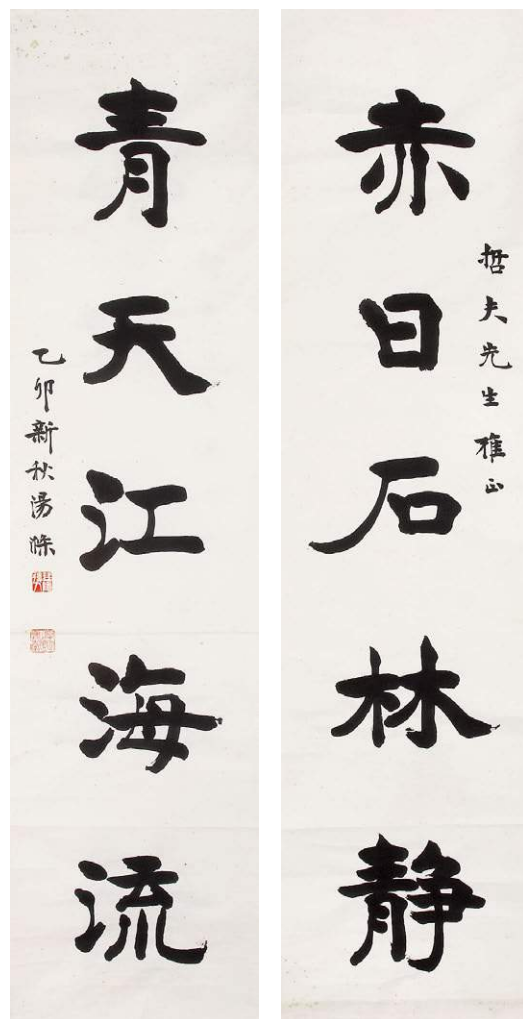 赤日石林静
哲夫先生雅正
青天江海流
乙卯新秋汤涤